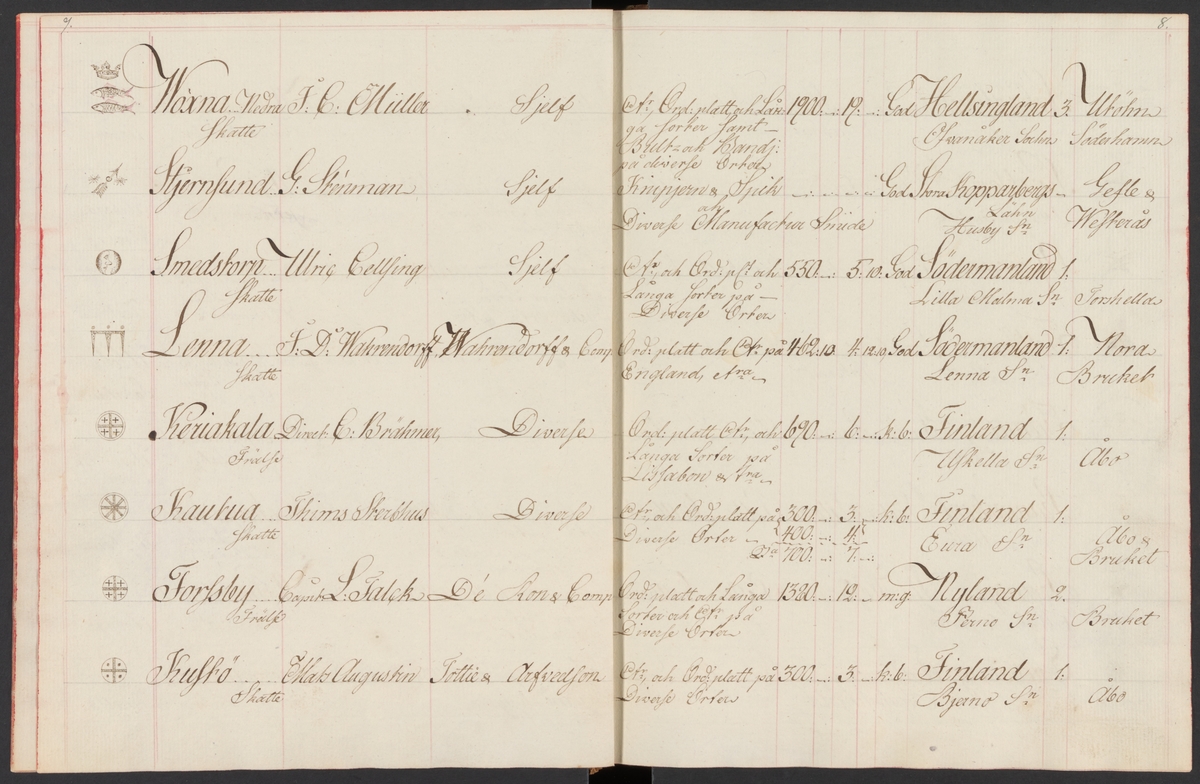 7.
8.
Woxna Nedra F. C: Müller Sjelf Ctr, Ord: platt och Lån: 1900. 19. God Hellsingland 3. Utöhn
Skatte ga sorter samt Ofvanåker Sochn Söderhamn
Bult- och Bandj:
på diverse Orter
Stjernsund G: Stenman Sjelf Knippjern & Spik God Stora Kopparbergs Gefle &
och Lähn
Diverse Manufactur Smide Husby Sn Westerås
Smedstorn Ulric Cellsing Sjelf Ctr, och Ord: plt och 550. 5: 10: God Södermanland 1:
Skatte Långa sorter på Lilla Malma Sn Torshella
Diverse Orter
Lenna F: D: Wahrendorff Wahrendorff & Comp Ord: platt och Ctr på 462:10 4: 12:10 God Södermanland 1: Nora
Skatte England, etra Lenna Sn Bruket
Keriakala Direct: C: Brähmer, Diverse Ord: platt Ctr, och 690. 6: k: 6: Finland 1:
Frälse Långa Sorter på Uskella Sn Åbo
Lissabon & tra
Kautua Thims Sterbhus Diverse Ctr, och Ord: platt på 300. 3: k: 6: Finland 1:
Skatte Diverse Orter 400. 4: Eura Sn Åbo &
700. 7: Bruket
Forssby L: Falck Dé Ron & Comp Ord: platt och Långa 1320. 12: m: g: Nyland 2.
Frälse Sorter och Ctr på Perno Sn Bruket
Diverse Orter
Kuskö Mats Augustin Tottie & Arfvedson Ctr, och Ord: platt på 300. 3: k: 6: Finland 1:
Skatte Diverse Orter Bjerno Sn Åbo